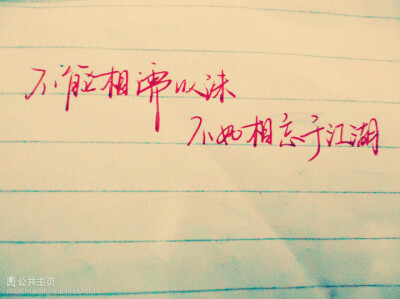 不能相濡以沫
不如相忘于江湖
圆公共主页